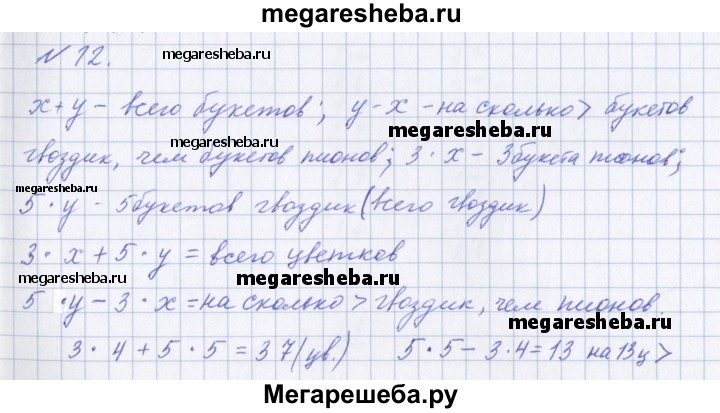 megaresheba.ru
N 12.
megaresheba.ru
x+y - всего букетов; y-x - на сколько > букетов
megaresheba.ru
megaresheba.ru
гвоздик, чем букетов пионов; 3·x - 3 букета пионов;
megaresheba.ru
5·y - 5 букетов гвоздик (всего гвоздик)
3·x+5·y = всего цветков
megaresheba.ru
megaresheba.ru
5·y-3·x = на сколько > гвоздик, чем пионов.
megaresheba.ru
3·4+5·5=37(цв.) 5·5-3·4=13 на 13ц >
Мегарешеба.ру